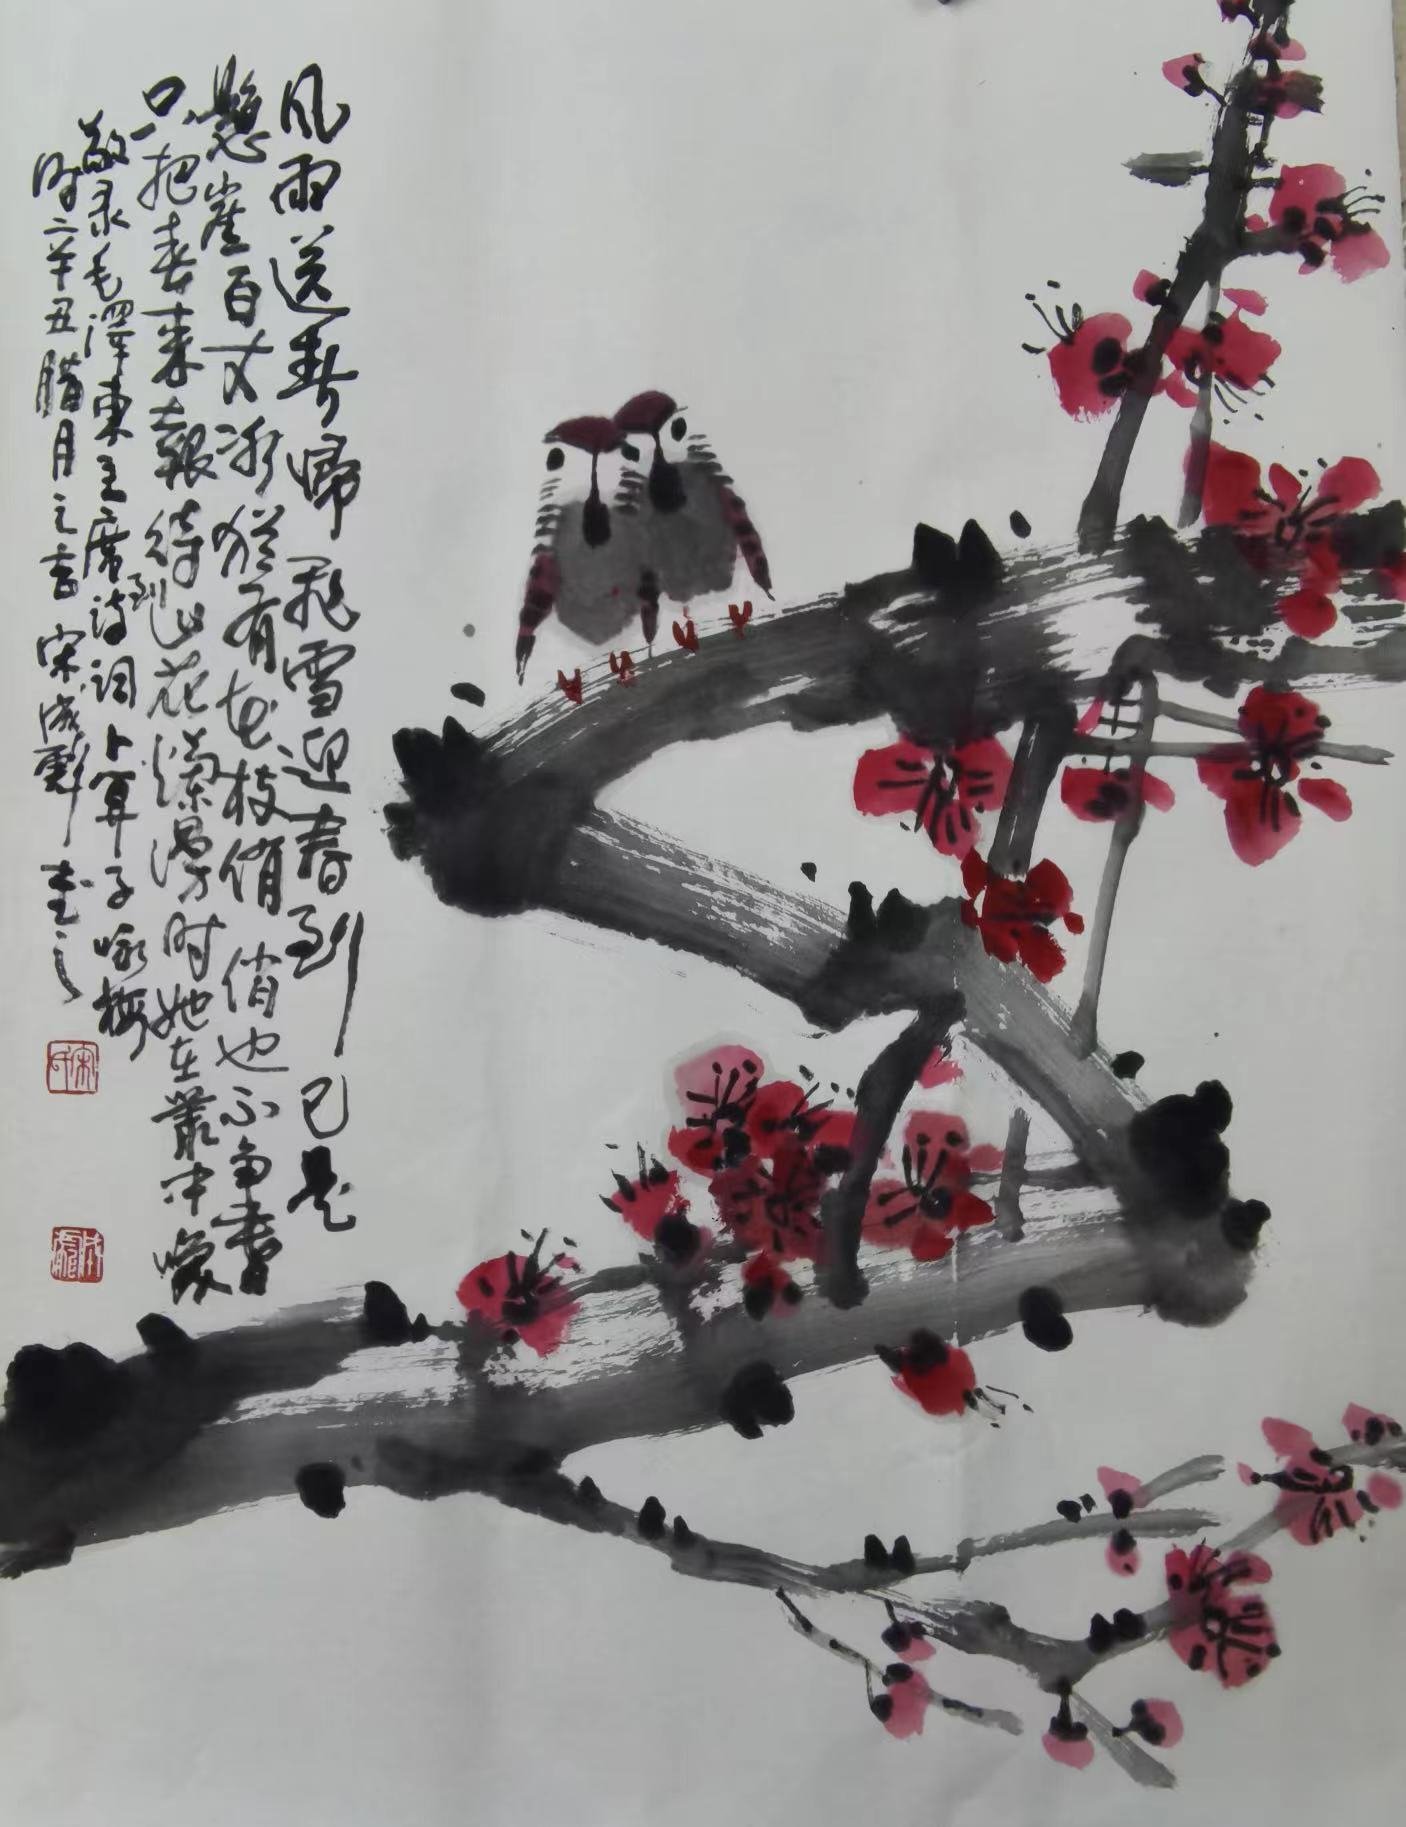 风雨送春归飞雪迎春到已是
悬崖百丈冰犹有花枝俏俏也不争春
只把春来报待到山花烂漫时她在丛中笑
敬录毛泽东主席诗词卜算子咏梅
时二辛丑腊月之吉宋成彪画之
宋氏
成彪